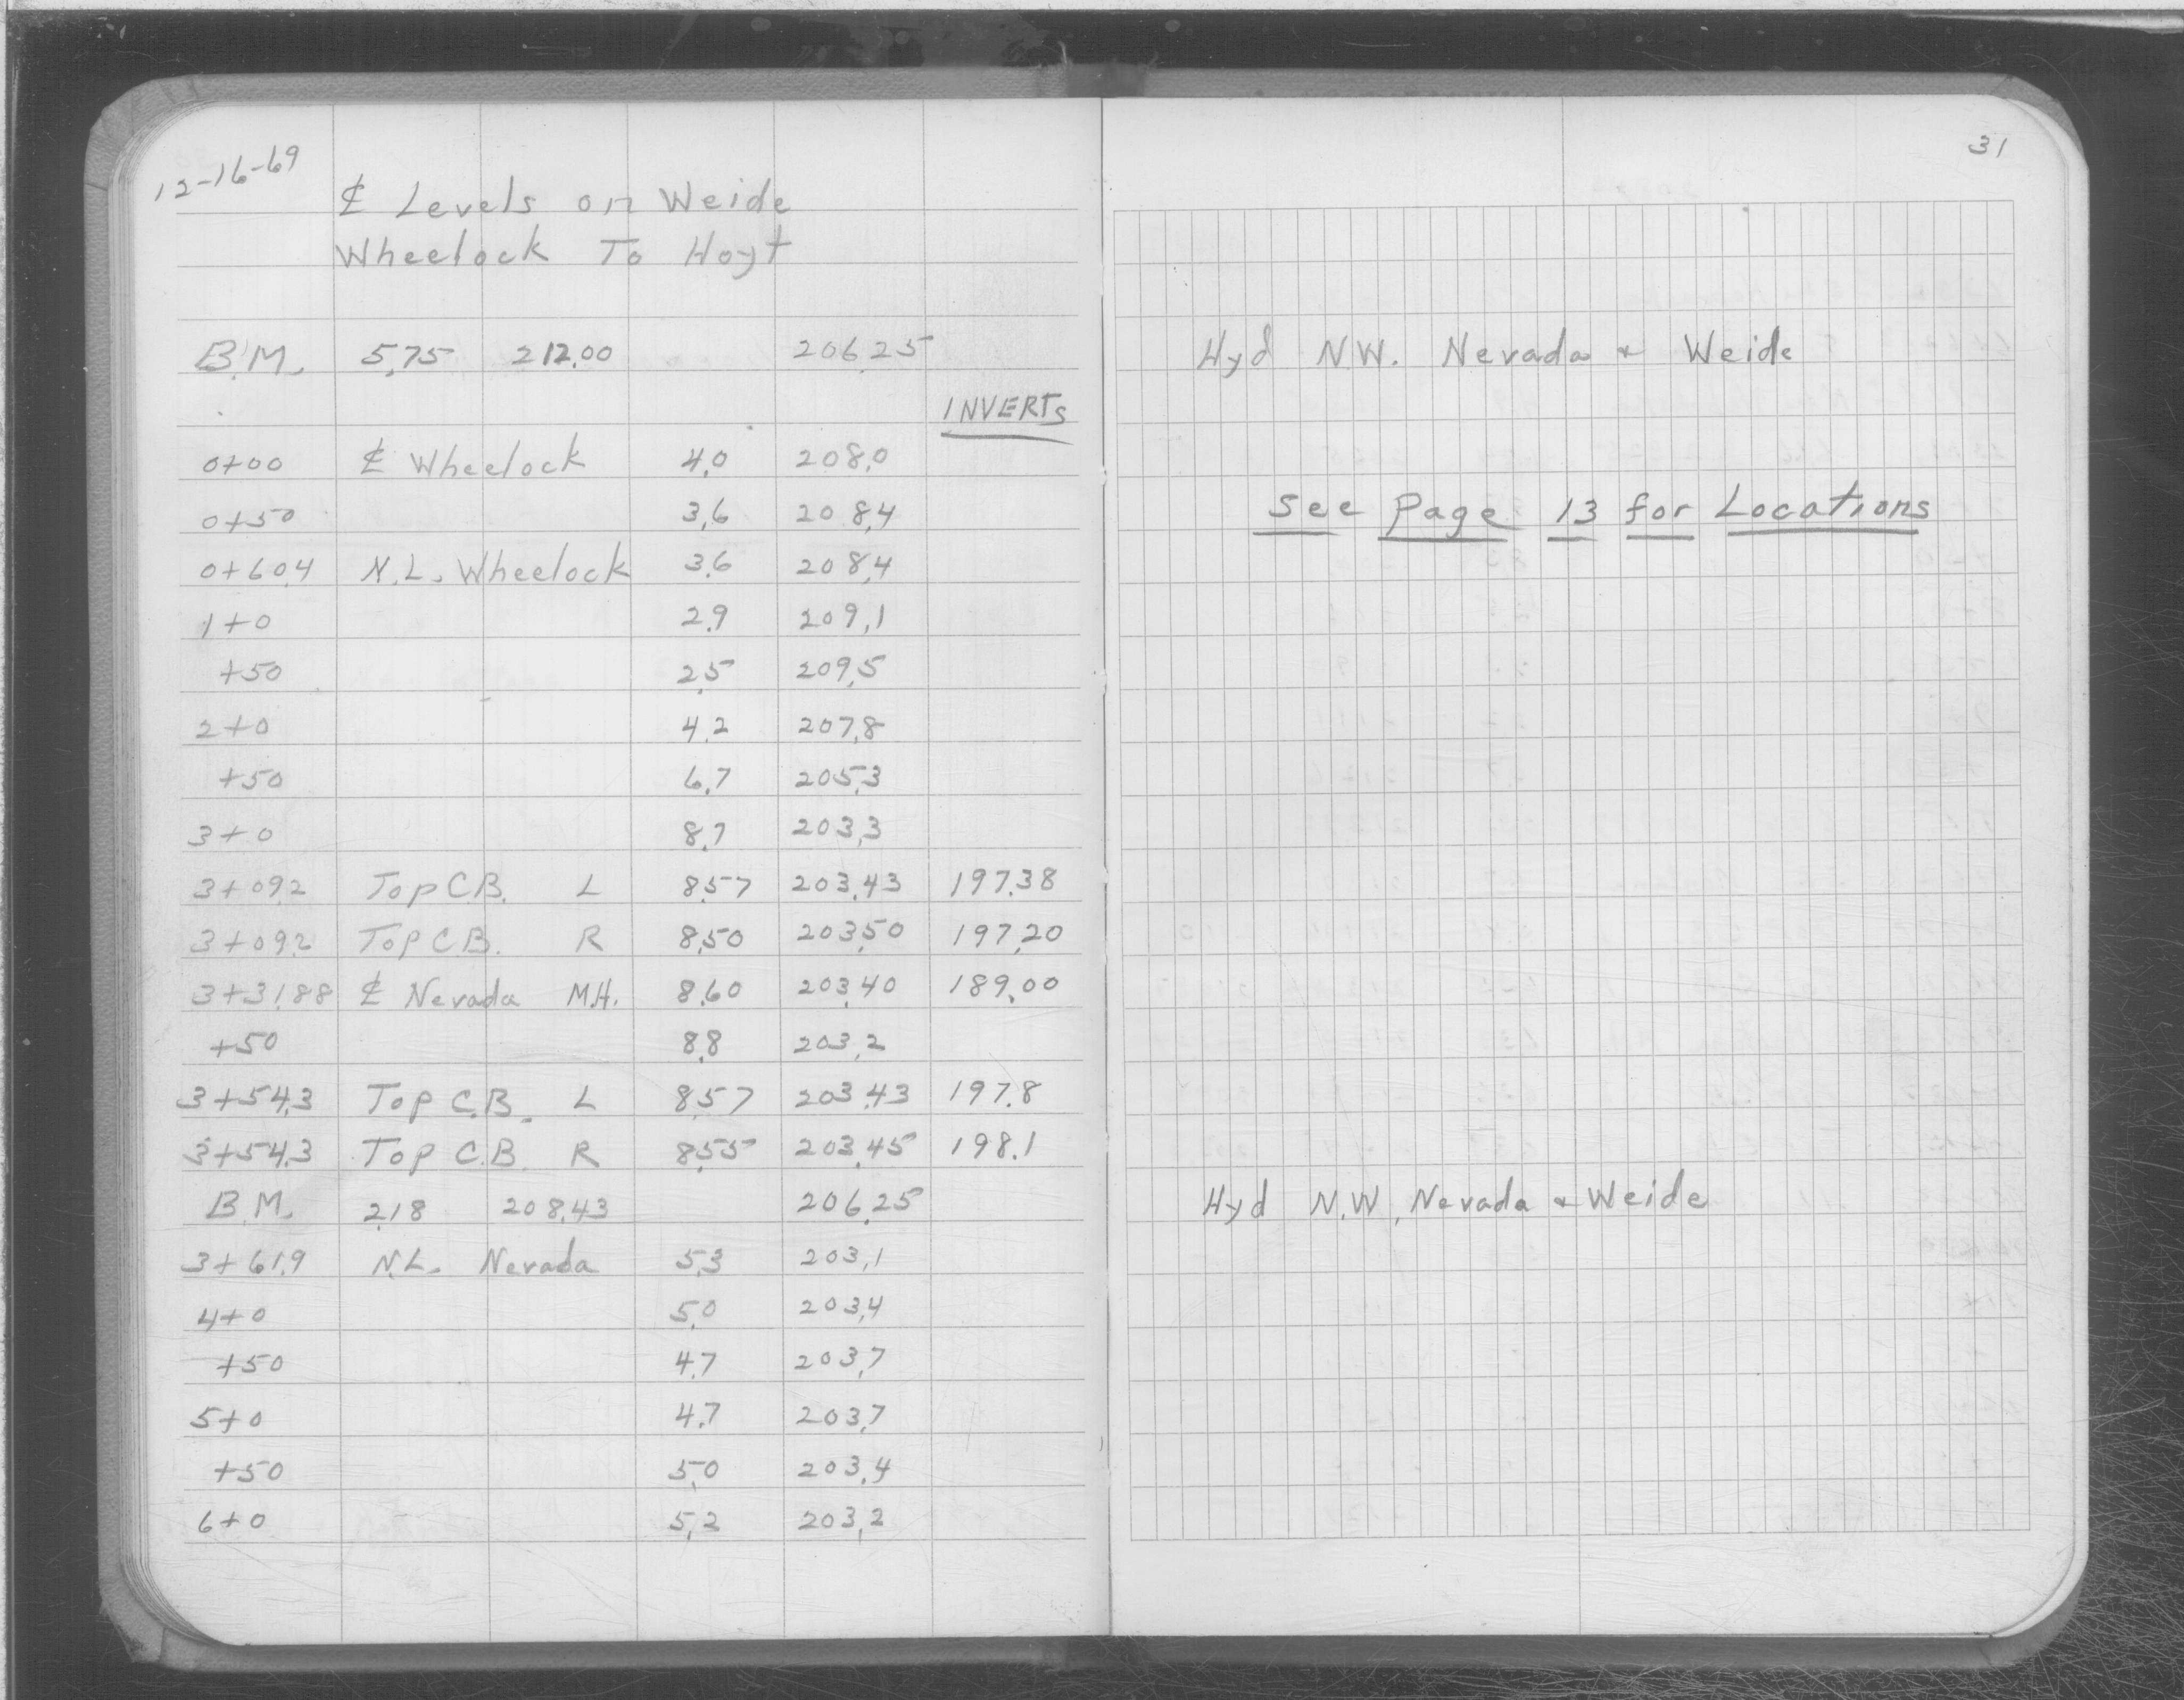 12-16-69
31
℄ Levels on Weide
Wheelock To Hoyt
B.M. 5.75 212.00 206.25 Hyd N.W. Nevada & Weide
INVERTS
0+00 ℄ Wheelock 4.0 208.0
0+50 3.6 208.4 See Page 13 for Locations
0+60.4 N.L. Wheelock 3.6 208.4
1+0 2.9 209.1
+50 2.5 209.5
2+0 4.2 207.8
+50 6.7 205.3
3+0 8.7 203.3
3+09.2 Top C.B. L 8.57 203.43 197.38
3+09.2 Top C.B. R 8.50 203.50 197.20
3+31.88 ℄ Nevada M.H. 8.60 203.40 189.00
+50 8.8 203.2
3+54.3 Top C.B. L 8.57 203.43 197.8
3+54.3 Top C.B. R 8.55 203.45 198.1
B.M. 2.18 208.43 206.25 Hyd N.W. Nevada & Weide
3+61.9 N.L. Nevada 5.3 203.1
4+0 5.0 203.4
+50 4.7 203.7
5+0 4.7 203.7
+50 5.0 203.4
6+0 5.2 203.2